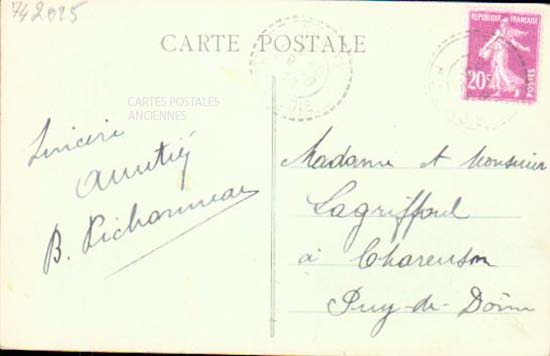 742025
CARTE POSTALE
REPUBLIQUE FRANÇAISE
20c
POSTES
CARTES POSTALES
ANCIENNES
Sincère
Amitié
B. Pichonneau
Madame et Monsieur
Lagriffoul
à Charenson
Puy-de-Dôme